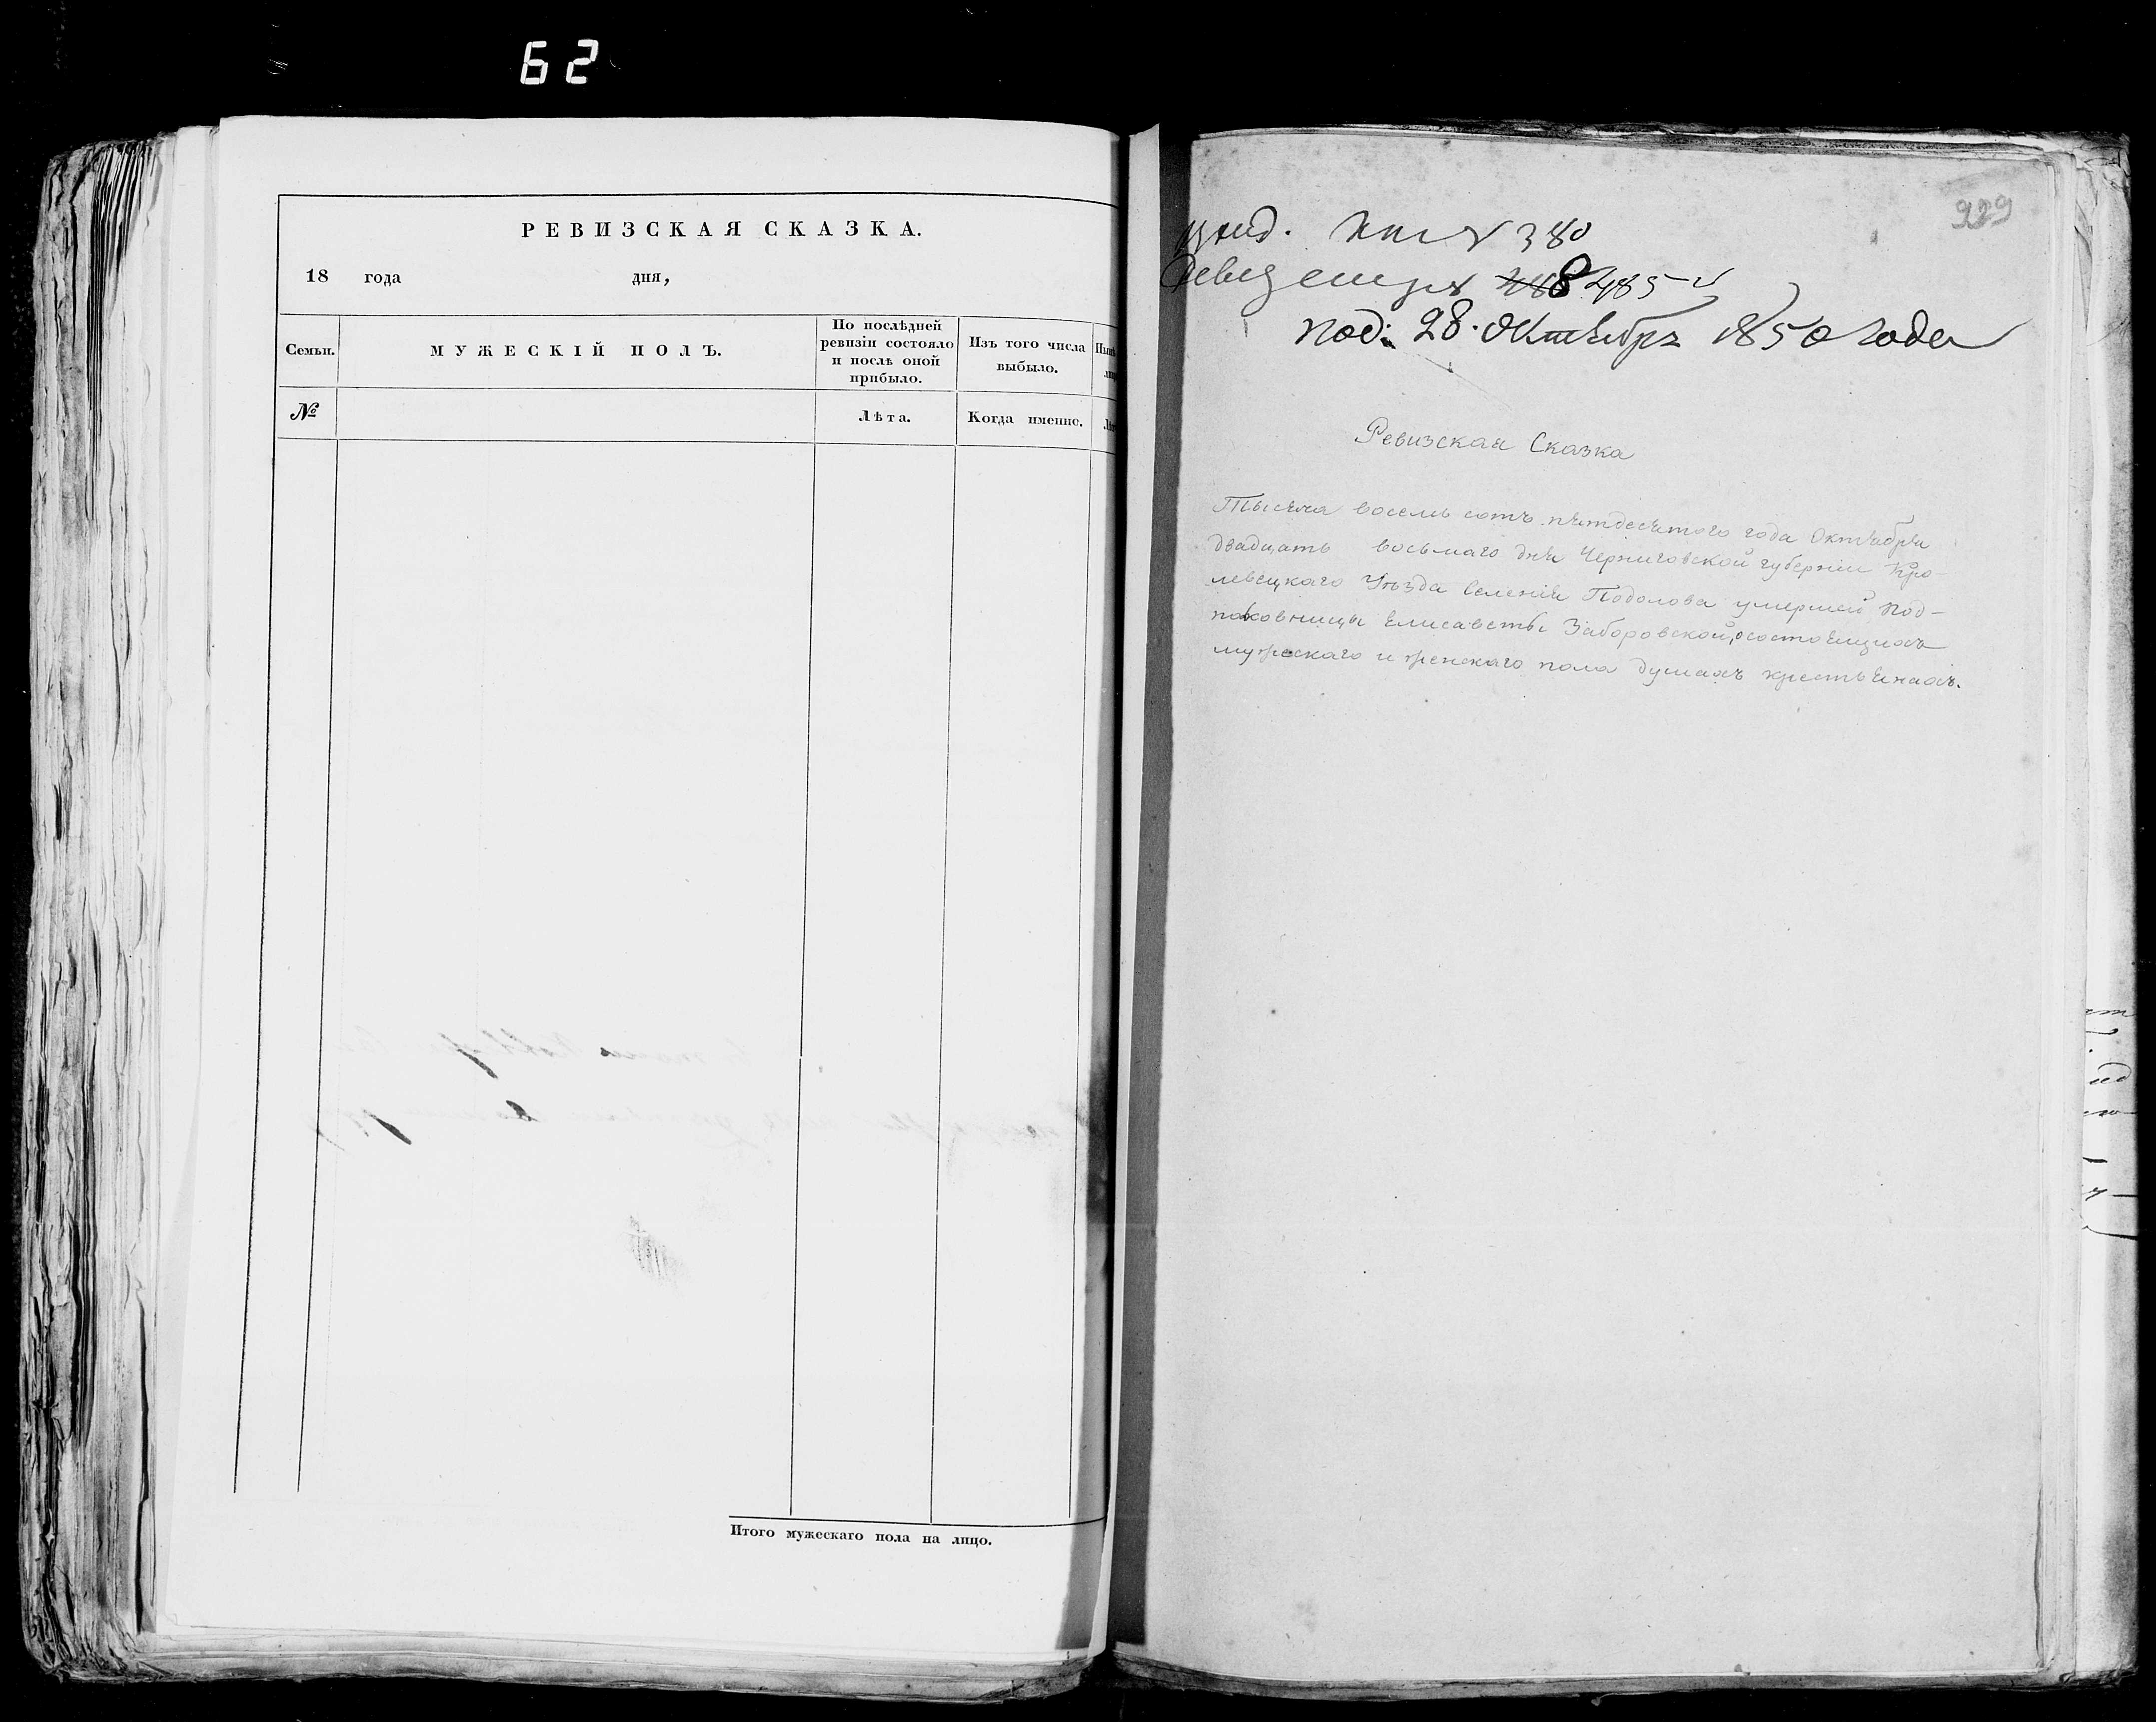 62
РЕВИЗСКАЯ СКАЗКА.
18 года дня,
Семьи.
МУЖЕСКІЙ ПОЛЪ.
По послѣдней
ревизіи состояло
и послѣ оной
прибыло.
Изъ того числа
выбыло.
№
Лѣта.
Когда именно.
Итого мужескаго пола на лицо.
929
№ 380
485
под: 28. Октября 1850 года
Ревизская Сказка
Тысяча восемь сотъ пятдесятого года Октября
двадцать восьмаго дня Черниговской губерніи Кро-
левецкаго Уѣзда селенія Подолова умершей Под-
полковницы Елисаветы Заборовской, о состоящихъ
мужескаго и женскаго пола душахъ крестьянахъ.